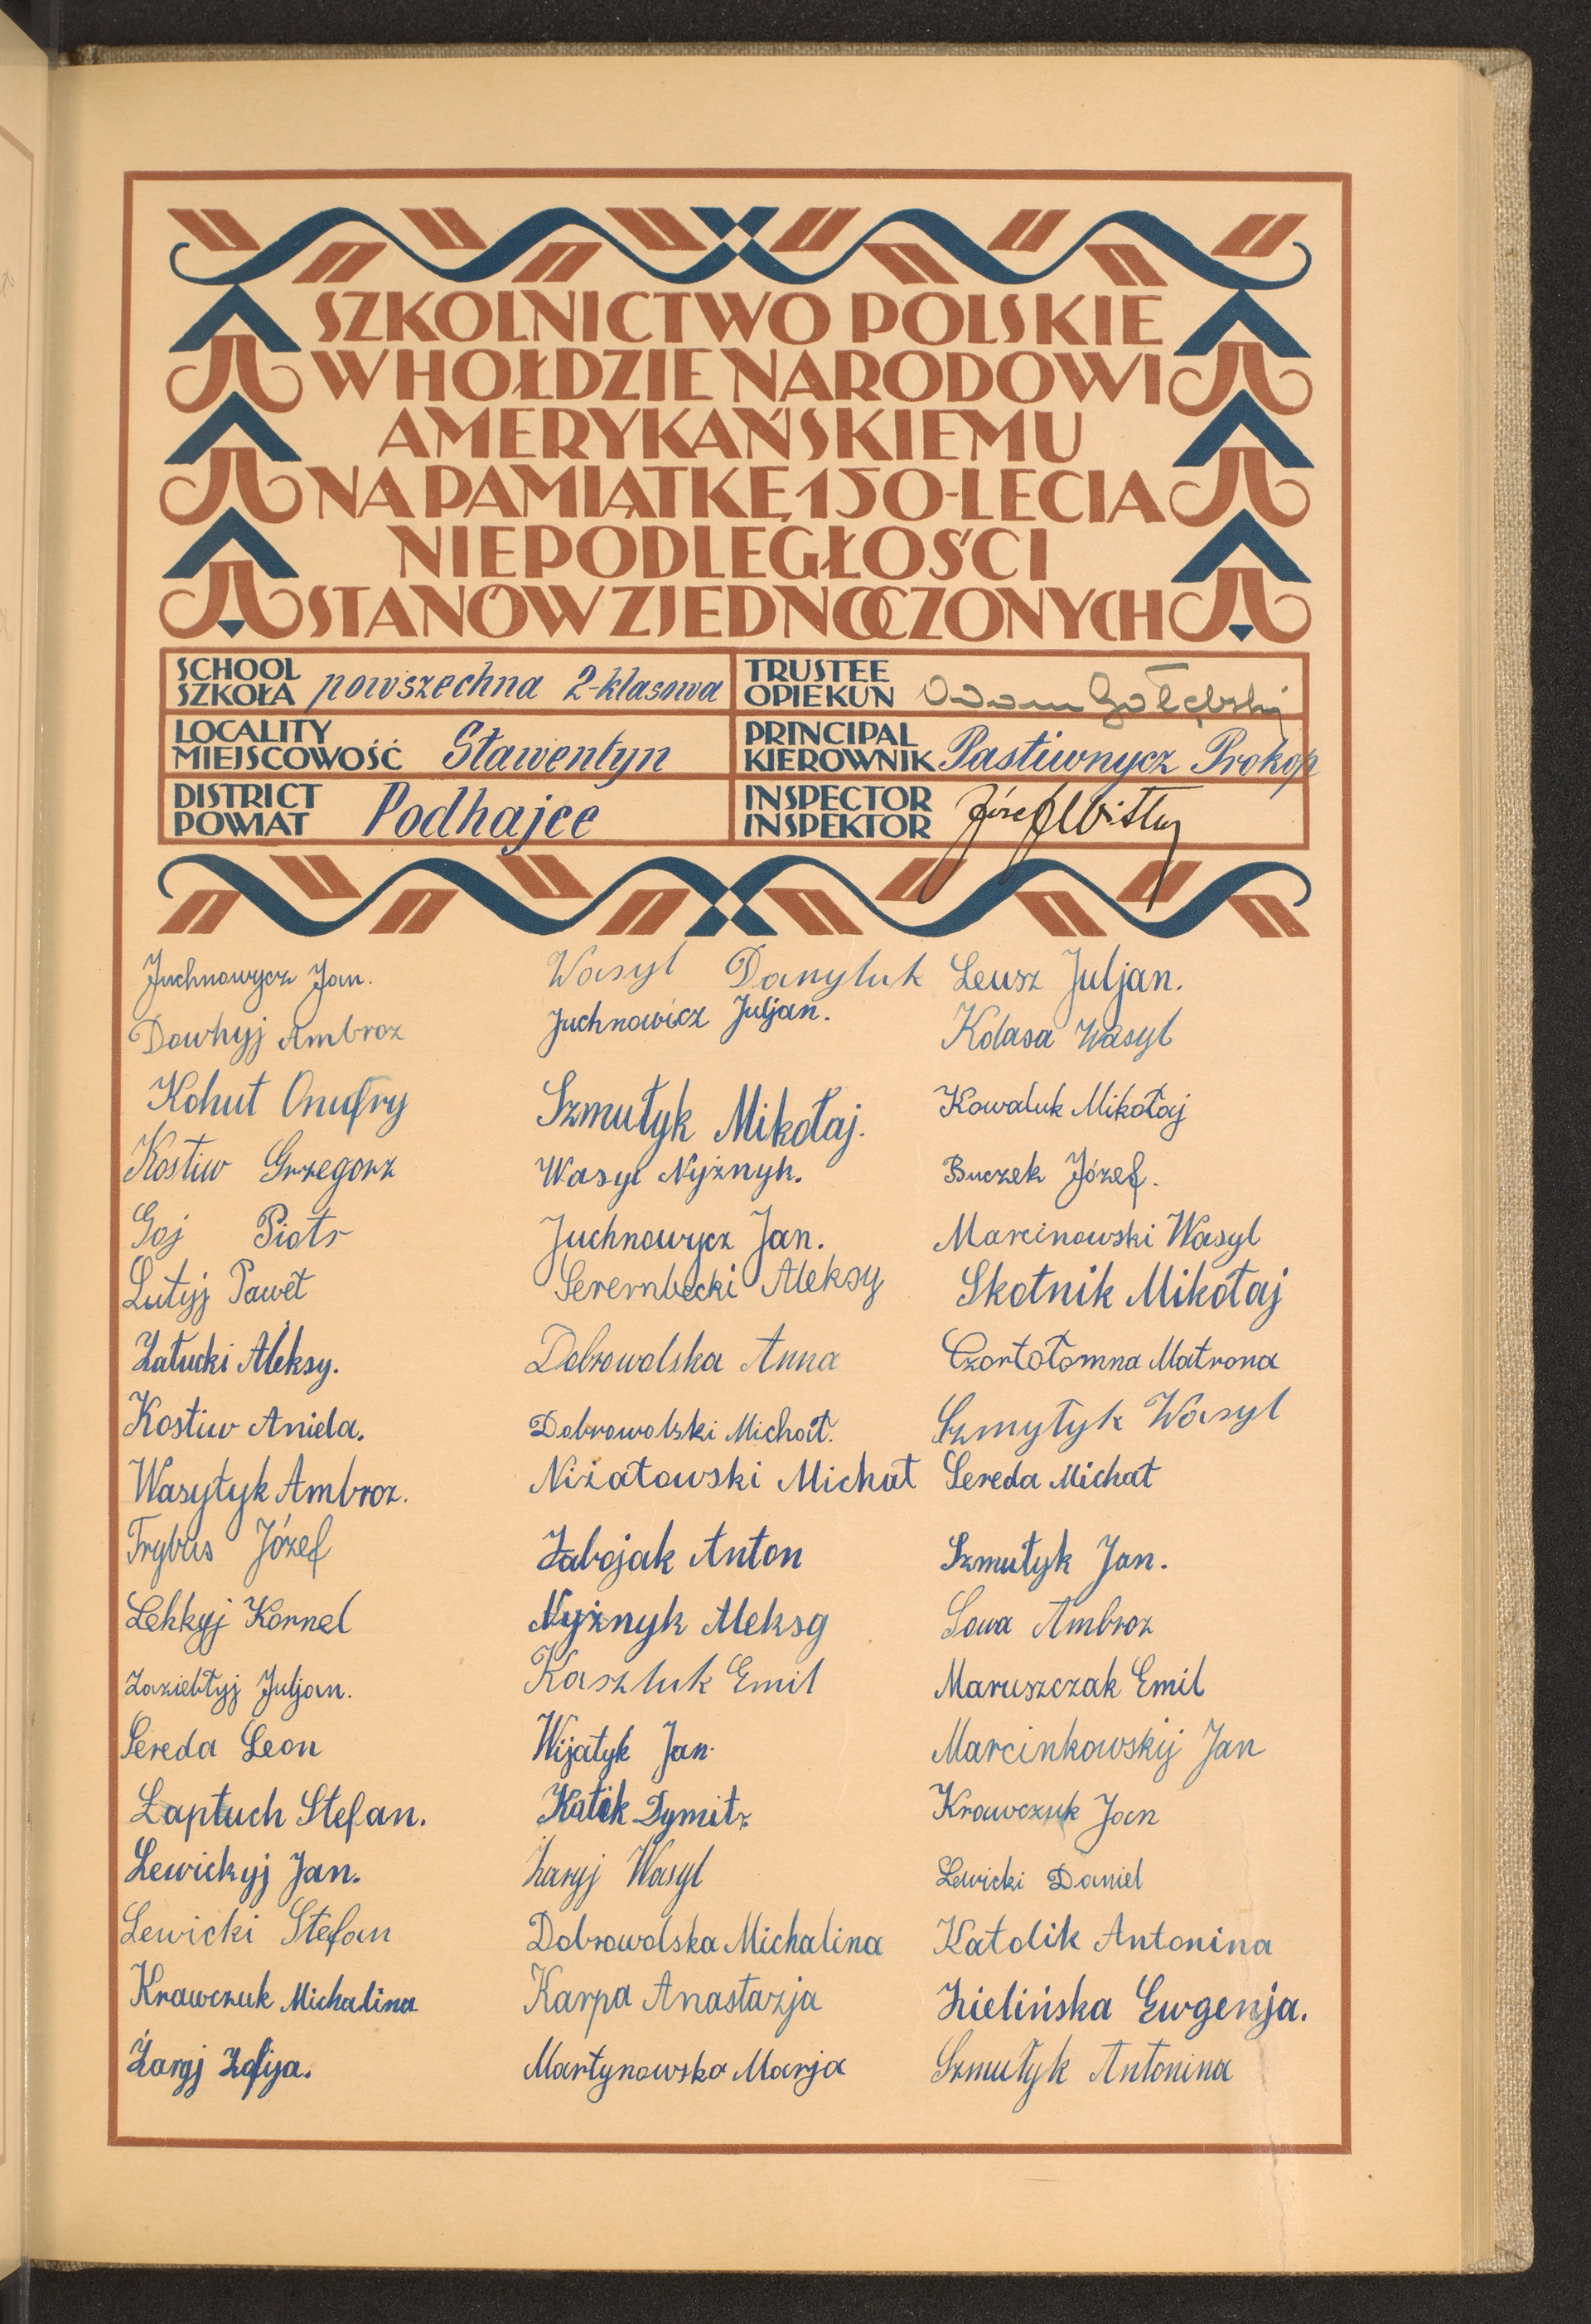 SZKOLNICTWO POLSKIE
W HOŁDZIE NARODOWI
AMERYKAŃSKIEMU
NA PAMIĄTKĘ 150-LECIA
NIEPODLEGŁOŚCI
STANÓW ZJEDNOCZONYCH
SCHOOL
SZKOŁA powszechna 2-klasowa
TRUSTEE
OPIEKUN Adam Gołębski
LOCALITY
MIEJSCOWOŚĆ Stawentyn
PRINCIPAL
KIEROWNIK Pastiwnycz Prokop
DISTRICT
POWIAT Podhajce
INSPECTOR
INSPEKTOR Józef Wittig
Juchnowycz Jan.
Dowhyj Ambroz
Kohut Onufry
Kostiw Grzegorz
Goj Piotr
Lutyj Paweł
Załucki Aleksy.
Kostiw Aniela.
Wasyłyk Ambroz.
Trybus Józef
Lekkyj Kornel
Zaziebłyj Juljan.
Sereda Leon
Łaptuch Stefan.
Lewickyj Jan.
Lewicki Stefan
Krawczuk Michalina
Żaryj Zofija.
Wasyl Danyluk
Juchnowicz Juljan.
Szmułyk Mikołaj.
Wasyl Nyżnyk.
Juchnowycz Jan.
Serembecki Aleksy
Dobrowolska Anna
Dobrowolski Michał.
Niżałowski Michał
Zabojak Anton
Nyżnyk Aleksy
Kaszluk Emil
Wijatyk Jan.
Katik Dymitr
Żaryj Wasyl
Dobrowolska Michalina
Karpa Anastazja
Martynowska Marja
Leusz Juljan.
Kolasa Wasyl
Kowaluk Mikołaj
Buczek Józef.
Marcinowski Wasyl
Skotnik Mikołaj
Czortołomna Matrona
Szmyłyk Wasyl
Sereda Michał
Szmułyk Jan.
Sowa Ambroz
Maruszczak Emil
Marcinkowskij Jan
Krawczuk Jan
Lewicki Daniel
Katolik Antonina
Zielińska Ewgenja.
Szmułyk Antonina